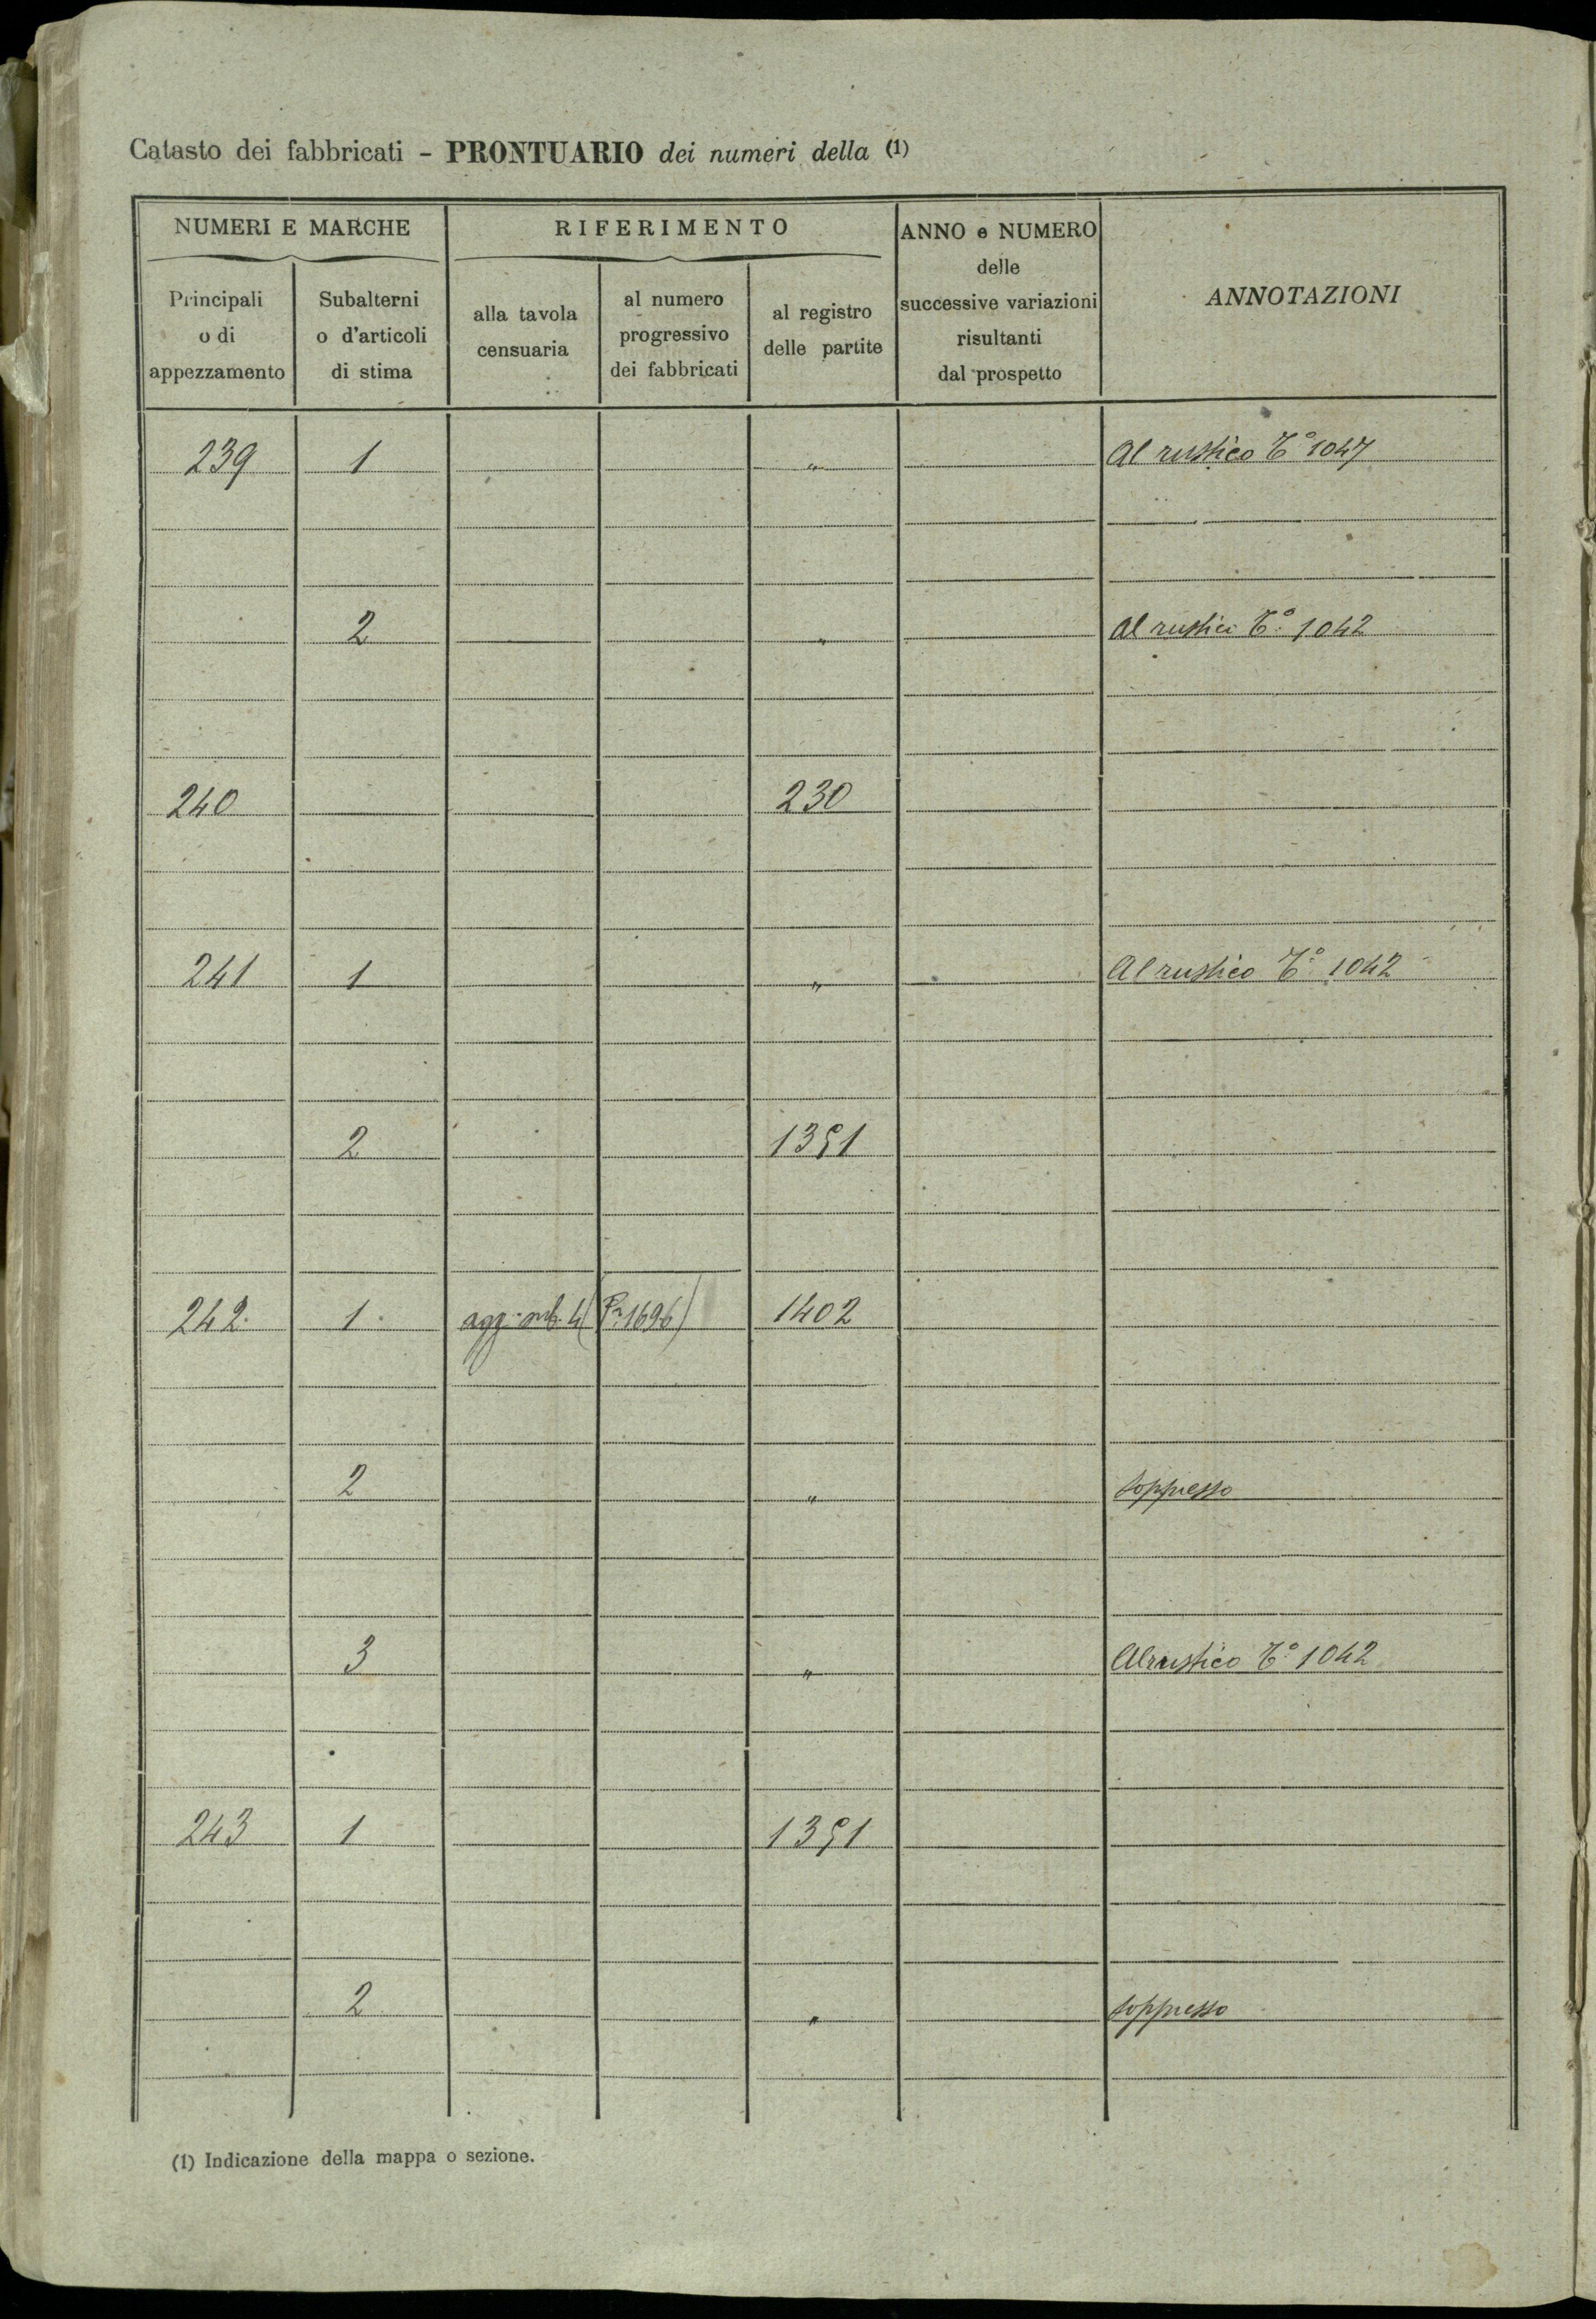 Catasto dei fabbricati - PRONTUARIO dei numeri della (1)
NUMERI E MARCHE
Principali
o di
appezzamento
Subalterni
o d'articoli
di stima
RIFERIMENTO
alla tavola
censuaria
al numero
progressivo
dei fabbricati
al registro
delle partite
ANNO e NUMERO
delle
successive variazioni
risultanti
dal prospetto
ANNOTAZIONI
239 1 " Al rustico To 1047
2 " Al rustico To 1042
240 230
241 1 " Al rustico To 1042
2 1391
242. 1. agg. sub. 4 (Pa 1696) 1402
2 " soppresso
3 " Al rustico To 1042
243 1 1391
2 " soppresso
(1) Indicazione della mappa o sezione.